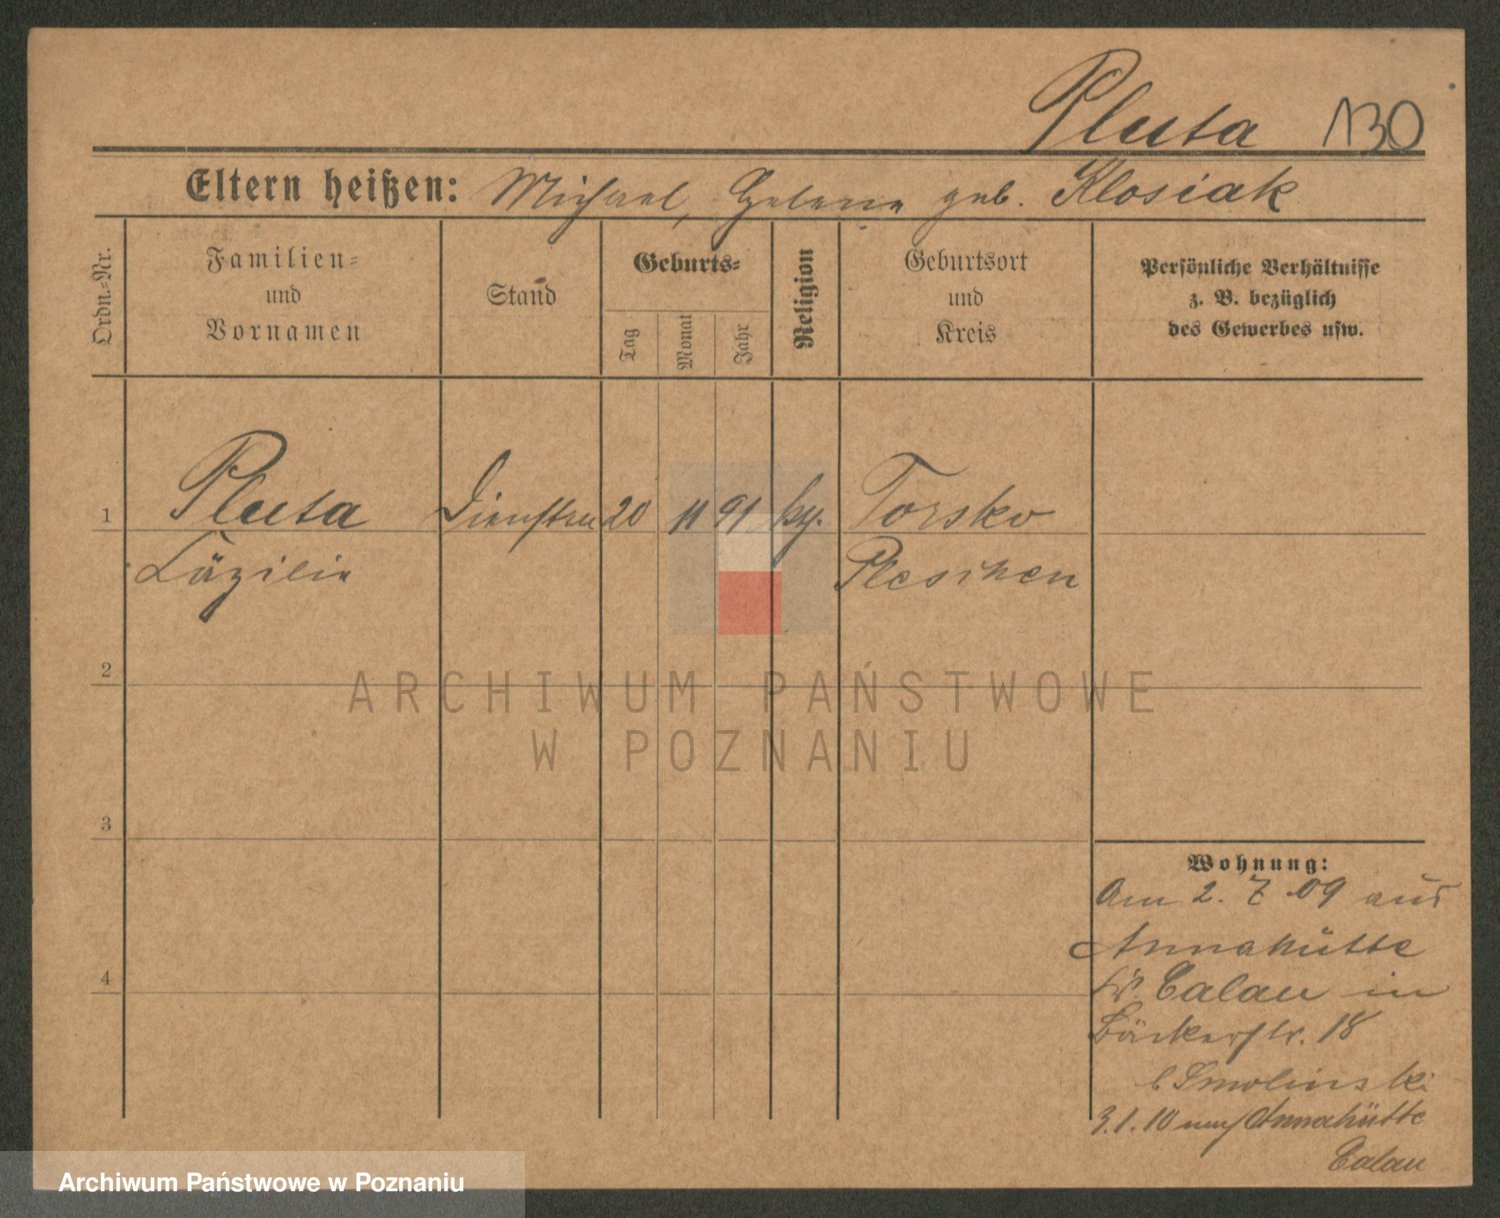 Pluta 130
Eltern heißen: Michael, Helena geb. Klosiak
Ordn.-Nr.
Familien-
und
Vornamen
Stand
Geburts-
Tag
Monat
Jahr
Religion
Geburtsort
und
Kreis
Persönliche Verhältnisse
z. B. bezüglich
des Gewerbes usw.
1 Pluta 20 11 91 Torsko
Cäzilie Pleschen
2
3
4
Wohnung:
Am 2. 7. 09 aus
Annahütte
Kr. Calau in
Bäckerstr. 18
b Smolinski
3.1.10 nach Annahütte
Calau
ARCHIWUM PAŃSTWOWE
W POZNANIU
Archiwum Państwowe w Poznaniu